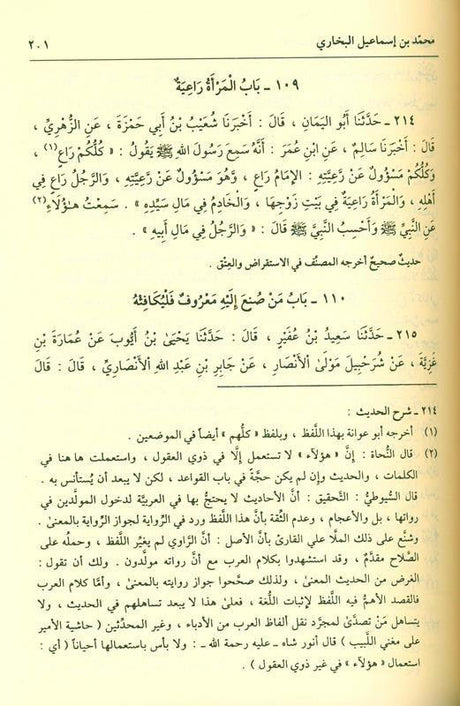 محمّد بن إسماعيل البخاري ٢٠١
١٠٩ ـ بَابُ الْمَرْأَةُ رَاعِيَةٌ
٢١٤ ـ حَدَّثَنَا أَبُو اليَمَانِ ، قَالَ : أَخْبَرَنَا شُعَيْبُ بْنُ أَبِي حَمْزَةَ ، عَنِ الزُّهْرِيِّ ،
قَالَ : أَخْبَرَنَا سَالِمٌ ، عَنِ ابْنِ عُمَرَ : أَنَّهُ سَمِعَ رَسُولَ اللهِ ﷺ يَقُولُ : « كُلُّكُمْ رَاعٍ (١) ،
وَكُلُّكُمْ مَسْؤُولٌ عَنْ رَعِيَّتِهِ : الإمَامُ رَاعٍ ، وَهُوَ مَسْؤُولٌ عَنْ رَعِيَّتِهِ ، وَالرَّجُلُ رَاعٍ فِي
أَهْلِهِ ، وَالمَرْأَةُ رَاعِيَةٌ فِي بَيْتِ زَوْجِهَا ، وَالْخَادِمُ فِي مَالِ سَيِّدِهِ » . سَمِعْتُ هٰؤُلَاءِ (٢)
عَنِ النَّبِيِّ ﷺ وَأَحْسِبُ النَّبِيَّ ﷺ قَالَ : « وَالرَّجُلُ فِي مَالِ أَبِيهِ » .
حديثٌ صحيحٌ أخرجه المصنّف في الاستقراض والعِتْق .
١١٠ ـ بَابُ مَنْ صُنِعَ إِلَيْهِ مَعْرُوفٌ فَلْيُكَافِئْهُ
٢١٥ ـ حَدَّثَنَا سَعِيدُ بْنُ عُفَيْرٍ ، قَالَ : حَدَّثَنَا يَحْيَى بْنُ أَيُّوبَ عَنْ عُمَارَةَ بْنِ
غَزِيَّةَ ، عَنْ شُرَحْبِيلَ مَوْلَى الأَنْصَارِ ، عَنْ جَابِرِ بْنِ عَبْدِ اللهِ الأَنْصَارِيِّ ، قَالَ : قَالَ
٢١٤ ـ شرح الحديث :
(١) أخرجه أبو عوانة بهذا اللَّفظ ، وبلفظ « كلُّهم » أيضاً في الموضعين .
(٢) قال النُّحاة : إنَّ « هؤلاء » لا تستعمل إلَّا في ذوي العقول ، واستعملت ها هنا في
الكلمات ، والحديث وإن لم يكن حجَّة في باب القواعد ، لكن لا يبعد أن يُستأنس به .
قال السُّيوطيُّ : التَّحقيق : أنَّ الأحاديث لا يحتجُّ بها في العربيَّة لدخول المولَّدين في
رواتها ، بل والأعجام ، وعدم الثِّقة بأنَّ هذا اللَّفظ ورد في الرِّواية لجواز الرِّواية بالمعنى .
وشنَّع على ذلك الملَّا علي القارئ بأنَّ الأصل : أنَّ الرَّاوي لم يغيِّر اللَّفظ ، وحمله على
الصَّلاح مقدَّم ، وقد استشهدوا بكلام العرب مع أنَّ رواته مولَّدون . ولك أن تقول :
الغرض من الحديث المعنىٰ ، ولذلك صحَّحوا جواز روايته بالمعنىٰ ، وأمَّا كلام العرب
فالقصد الأهمُّ فيه اللَّفظ لإثبات اللُّغة ، فعلىٰ هذا لا يبعد تساهلهم في الحديث ، ولا
يتساهل مَنْ تصدَّىٰ لمجرَّد نقل ألفاظ العرب من الأدباء ، وغير المحدِّثين ( حاشية الأمير
على مغني اللَّبيب ) قال أنور شاه ـ عليه رحمة الله ـ : ولا بأس باستعمالها أحياناً ( أي :
استعمال « هؤلاء » في غير ذوي العقول ) .